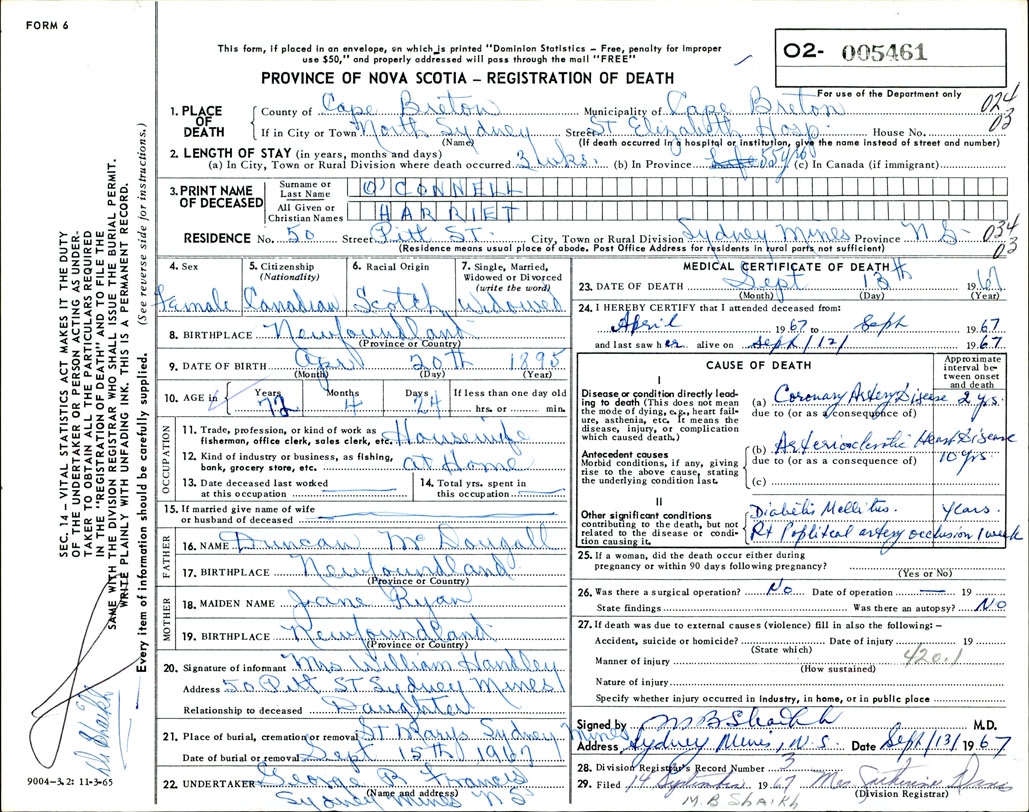 FORM 6
This form, if placed in an envelope, on which is printed "Dominion Statistics – Free, penalty for improper
use $50," and properly addressed will pass through the mail "FREE"
PROVINCE OF NOVA SCOTIA – REGISTRATION OF DEATH
02- 005461
For use of the Department only
024
03
1. PLACE OF DEATH
County of Cape Breton Municipality of Cape Breton
If in City or Town North Sydney Street St Elizabeth Hosp. House No.
(Name) (If death occurred in a hospital or institution, give the name instead of street and number)
2. LENGTH OF STAY (in years, months and days)
(a) In City, Town or Rural Division where death occurred 3 wks. (b) In Province Life 55 yrs (c) In Canada (if immigrant)
3. PRINT NAME OF DECEASED
Surname or Last Name O'CONNELL
All Given or Christian Names HARRIET
RESIDENCE No. 50 Street Pitt ST. City, Town or Rural Division Sydney Mines Province N S-
034
03
(Residence means usual place of abode. Post Office Address for residents in rural parts not sufficient)
4. Sex Female
5. Citizenship (Nationality) Canadian
6. Racial Origin Scotch
7. Single, Married, Widowed or Divorced (write the word) Widowed
8. BIRTHPLACE Newfoundland
(Province or Country)
9. DATE OF BIRTH Apr 20th 1895
(Month) (Day) (Year)
10. AGE in Years 72 Months 4 Days 24 If less than one day old hrs. or min.
OCCUPATION
11. Trade, profession, or kind of work as fisherman, office clerk, sales clerk, etc. Housewife
12. Kind of industry or business, as fishing, bank, grocery store, etc. at Home
13. Date deceased last worked at this occupation
14. Total yrs. spent in this occupation
15. If married give name of wife or husband of deceased
FATHER
16. NAME Duncan McDougall
17. BIRTHPLACE Newfoundland
(Province or Country)
MOTHER
18. MAIDEN NAME Jane Ryan
19. BIRTHPLACE Newfoundland
(Province or Country)
20. Signature of informant Mrs William Handley
Address 50 Pitt ST Sydney Mines
Relationship to deceased Daughter
21. Place of burial, cremation or removal St Marys Sydney Mines
Date of burial or removal Sept 15th 1967
22. UNDERTAKER George B Francis
(Name and address)
Sydney Mines N S
MEDICAL CERTIFICATE OF DEATH
23. DATE OF DEATH Sept 13th 1967
(Month) (Day) (Year)
24. I HEREBY CERTIFY that I attended deceased from:
April 1967 to Sept 1967
and last saw her alive on Sept/12/ 1967
CAUSE OF DEATH
Approximate interval between onset and death
I
Disease or condition directly leading to death (This does not mean the mode of dying, e.g., heart failure, asthenia, etc. It means the disease, injury, or complication which caused death.)
(a) Coronary Artery Disease 2 yrs.
due to (or as a consequence of)
Antecedent causes
Morbid conditions, if any, giving rise to the above cause, stating the underlying condition last.
(b) Arteriosclerotic Heart Disease 10 yrs.
due to (or as a consequence of)
(c)
II
Other significant conditions contributing to the death, but not related to the disease or condition causing it.
Diabetis Mellitus. years.
Rt Popliteal artery occlusion 1 week
25. If a woman, did the death occur either during
pregnancy or within 90 days following pregnancy?
(Yes or No)
26. Was there a surgical operation? No Date of operation — 19
State findings Was there an autopsy? No
27. If death was due to external causes (violence) fill in also the following: –
Accident, suicide or homicide? Date of injury 19
(State which)
Manner of injury 420.1
(How sustained)
Nature of injury
Specify whether injury occurred in industry, in home, or in public place
Signed by M B Shaikh M.D.
Address Sydney Mines, N.S. Date Sept/13/1967
28. Division Registrar's Record Number 3
29. Filed 14 September 1967 Mrs
(Division Registrar)
M.B SHAIKH
SEC. 14 – VITAL STATISTICS ACT MAKES IT THE DUTY
OF THE UNDERTAKER OR PERSON ACTING AS UNDER-
TAKER TO OBTAIN ALL THE PARTICULARS REQUIRED
IN THE "REGISTRATION OF DEATH" AND TO FILE THE
SAME WITH THE DIVISION REGISTRAR WHO SHALL ISSUE THE BURIAL PERMIT.
WRITE PLAINLY WITH UNFADING INK. THIS IS A PERMANENT RECORD.
Every item of information should be carefully supplied. (See reverse side for instructions.)
Shaikh
9004-3.2: 11-3-65